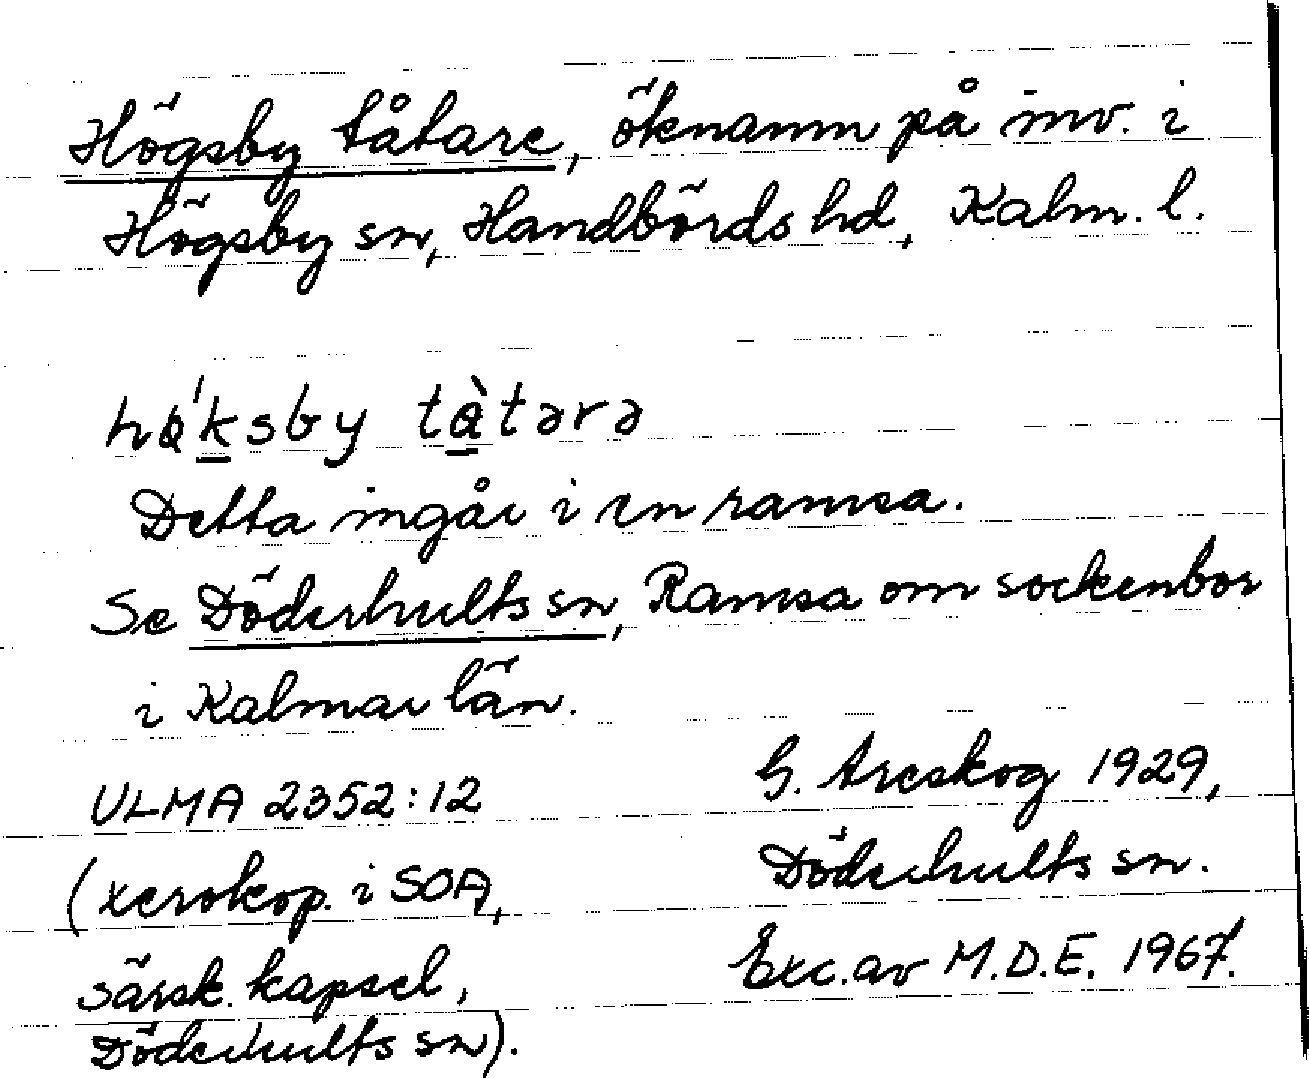 Högsby tåtare, öknamn på inv. i
Högsby sn, Handbörds hd, Kalm. l.
Detta ingår i en ramsa.
Se Döderhults sn, Ramsa om sockenbor
i Kalmar län.
ULMA 2352:12
(xerokop. i SOA,
särsk. kapsel,
Döderhults sn).
G. Areskog 1929,
Döderhults sn.
Exc. av M.D.E. 1967.